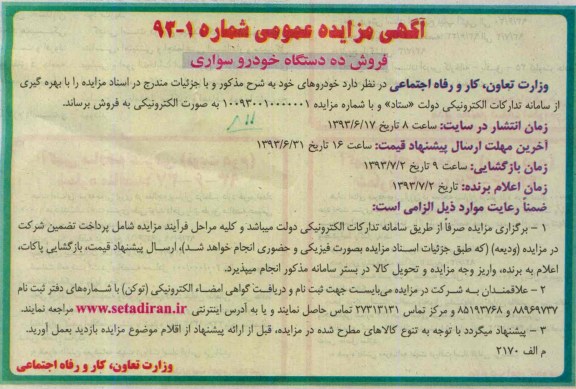 آگهی مزایده عمومی شماره ۱-۹۳
فروش ده دستگاه خودرو سواری
وزارت تعاون، کار و رفاه اجتماعی در نظر دارد خودروهای خود به شرح مذکور و با جزئیات مندرج در اسناد مزایده را با بهره گیری
از سامانه تدارکات الکترونیکی دولت «ستاد» و با شماره مزایده ۱۰۰۹۳۰۰۱۰۰۰۰۰۰۱ به صورت الکترونیکی به فروش برساند.
زمان انتشار در سایت: ساعت ۸ تاریخ ۱۳۹۳/۶/۱۷
آخرین مهلت ارسال پیشنهاد قیمت: ساعت ۱۶ تاریخ ۱۳۹۳/۶/۳۱
زمان بازگشایی: ساعت ۹ تاریخ ۱۳۹۳/۷/۲
زمان اعلام برنده: تاریخ ۱۳۹۳/۷/۲
ضمناً رعایت موارد ذیل الزامی است:
۱ - برگزاری مزایده صرفاً از طریق سامانه تدارکات الکترونیکی دولت میباشد و کلیه مراحل فرآیند مزایده شامل پرداخت تضمین شرکت
در مزایده (ودیعه) (که طبق جزئیات اسناد مزایده بصورت فیزیکی و حضوری انجام خواهد شد)، ارسال پیشنهاد قیمت، بازگشایی پاکات،
اعلام به برنده، واریز وجه مزایده و تحویل کالا در بستر سامانه مذکور انجام میپذیرد.
۲ - علاقمندان به شرکت در مزایده می‌بایست جهت ثبت نام و دریافت گواهی امضاء الکترونیکی (توکن) با شماره‌های دفتر ثبت نام
۸۸۹۶۹۷۳۷ و ۸۵۱۹۳۷۶۸ و مرکز تماس ۲۷۳۱۳۱۳۱ تماس حاصل نمایند و یا به آدرس اینترنتی www.setadiran.ir مراجعه نمایند.
۳ - پیشنهاد میگردد با توجه به تنوع کالاهای مطرح شده در مزایده، قبل از ارائه پیشنهاد از اقلام موضوع مزایده بازدید بعمل آورید.
م الف ۲۱۷۰
وزارت تعاون، کار و رفاه اجتماعی